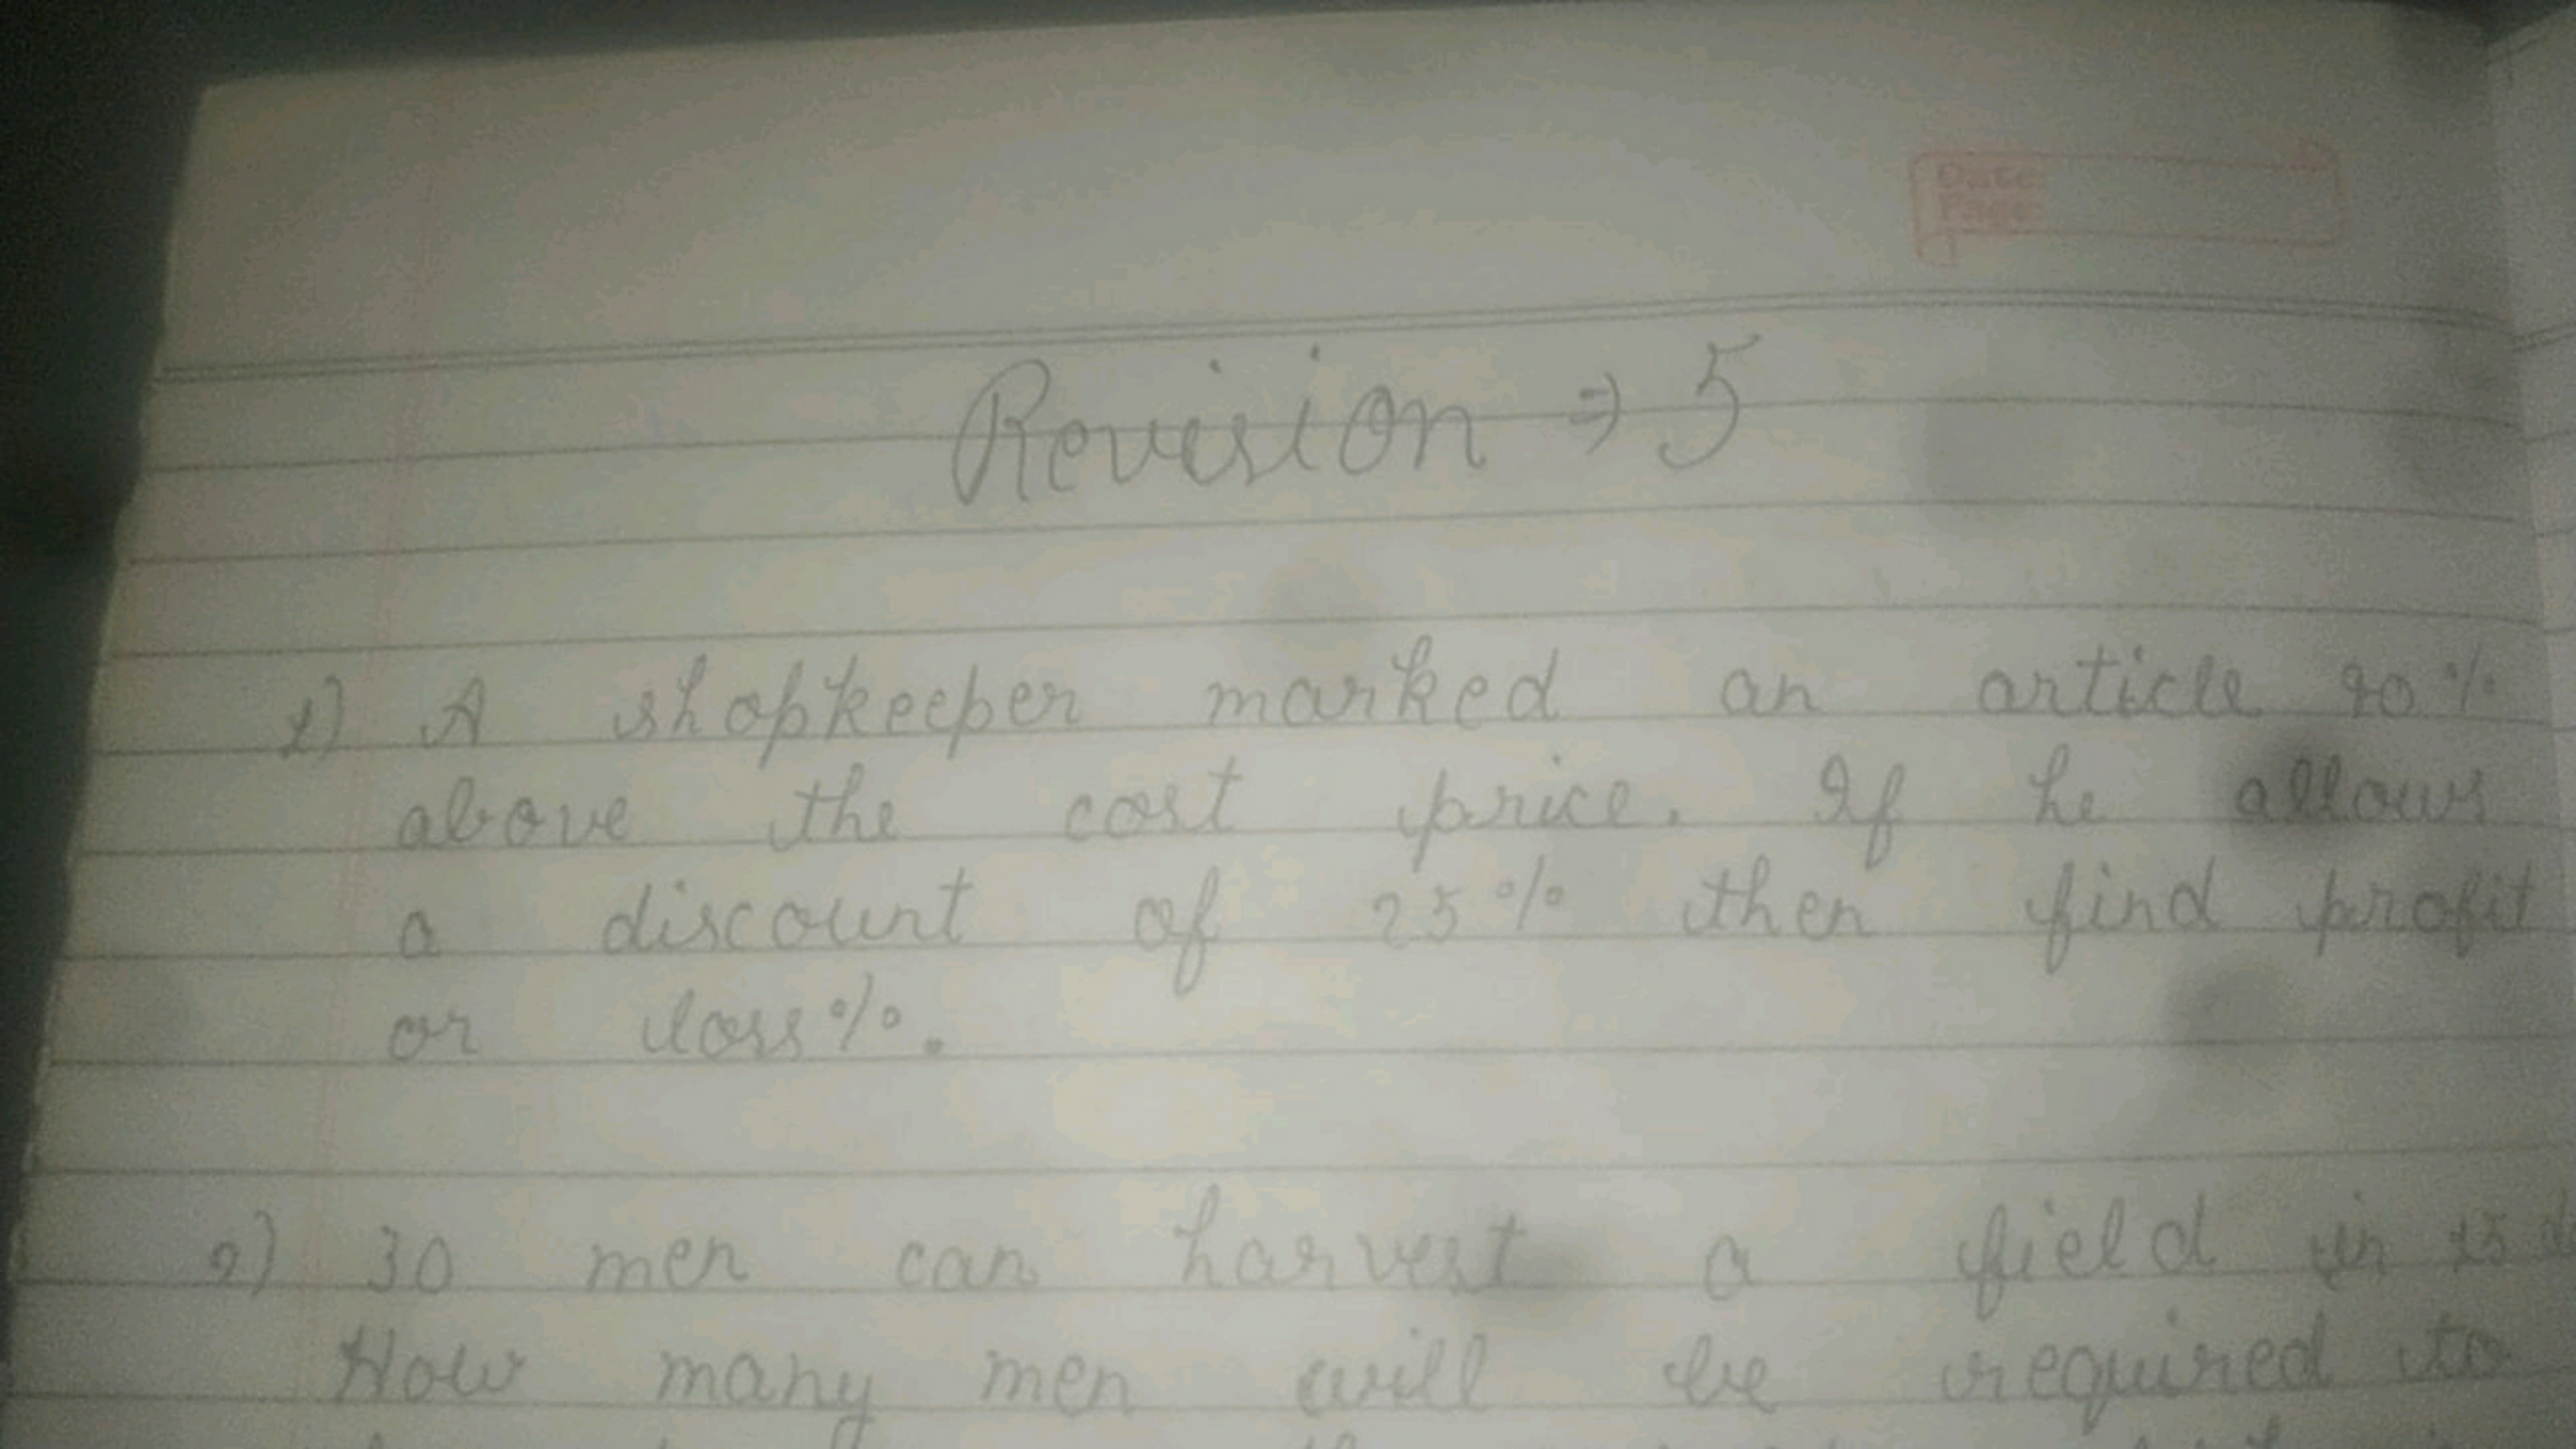 Date:
Page:
Revision ⇒ 5
1) A shopkeeper marked an article 20%
above the cost price. If he allows
a discount of 25% then find profit
or loss%.
2) 30 men can harvest a field in 15
How many men will be required to